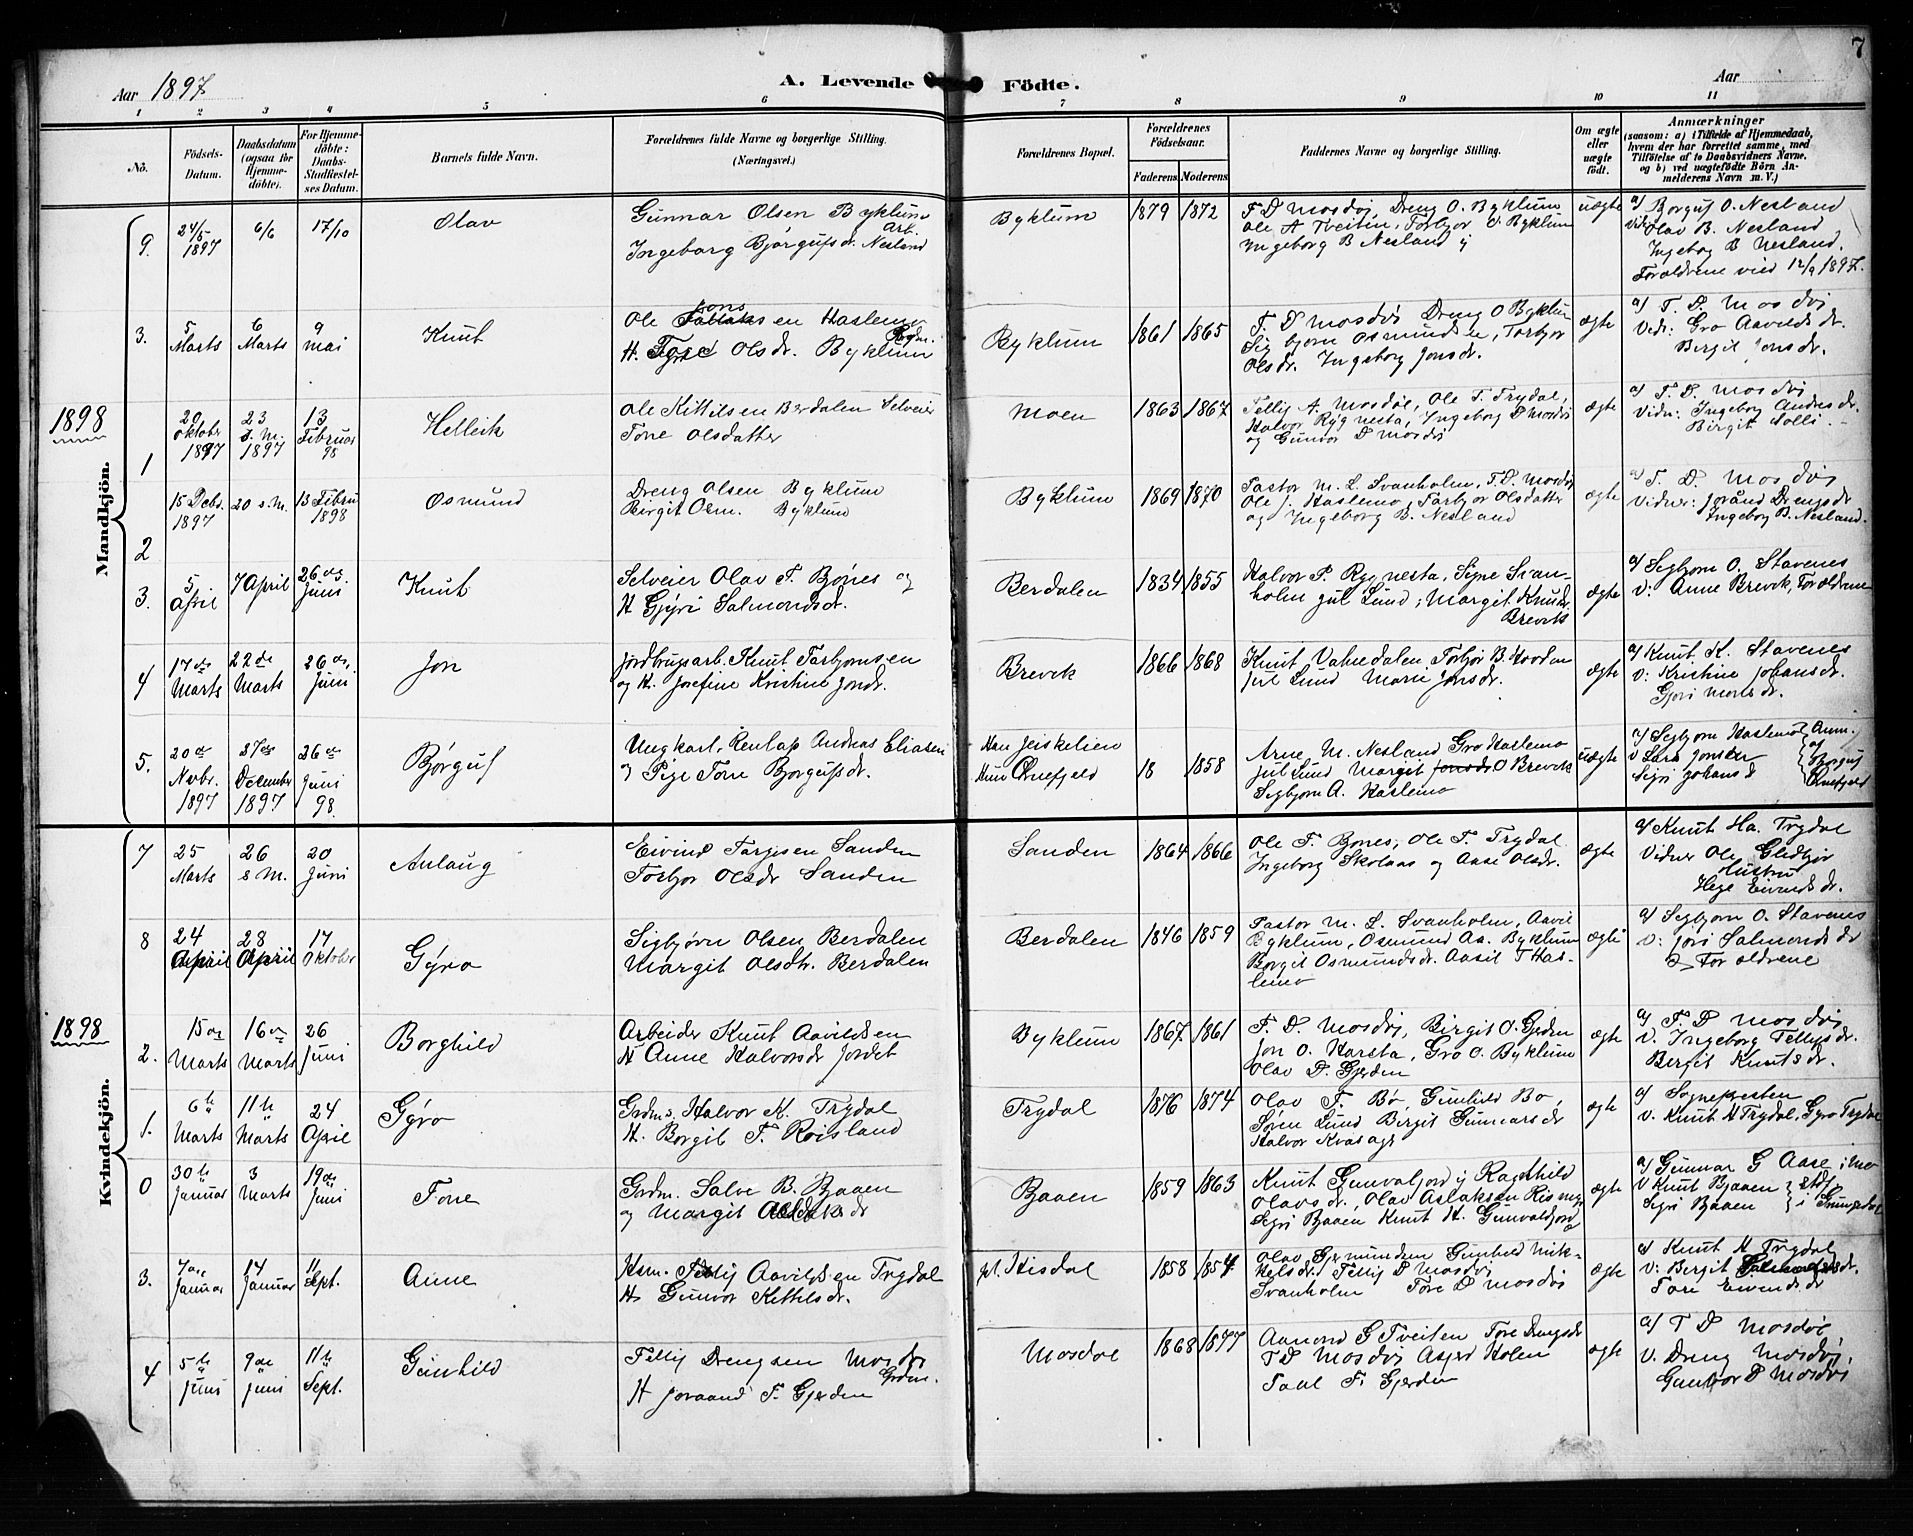 7
Aar 1897
A. Levende Födte.
Aar
1 2 3 4 5 6 7 8 9 10 11
No.
Födsels-Datum.
Daabsdatum (ogsaa for Hjemmedöbte).
For Hjemmedöbte: Daabs-Stadfæstelses Datum.
Barnets fulde Navn.
Forældrenes fulde Navne og borgerlige Stilling.
(Næringsvei.)
Forældrenes Bopæl.
Forældrenes Födselsaar.
Faderens. Moderens.
Faddernes Navne og borgerlige Stilling.
Om ægte eller uægte födt.
Anmærkninger
(saasom: a) i Tilfælde af Hjemmedaab, hvem der har forrettet samme, med Tilföielse af to Daabsvidners Navne, og b) ved uægtefödte Börn Anmelderens Navn m. V.)
Mandkjön.
9. 24/5 1897 6/6 17/10 Olav
Gunnar Olsen Byklum Arb.
Ingeborg Bjørgufsdr. Nesland
Byklum 1879 1872
T D Mosdøj, Dreng O. Byklum
Ole A Tveiten, Torbjor O. Byklum
Ingeborg B Nesland
uægte
a/ Borguf O. Nesland
Olav B. Nesland
Ingebog B Nesland.
Forældrene vied 12/9 1897.
3. 5 Marts 6 Marts 9 Mai Knut
Ole Jonsen Haslemo
H. Tone Olsdr. Byklum
Byklum 1861 1865
T. D Mosdøj Dreng O Byklum
Sigbjørn Osmundsen, Torbjor
Olsdr. Ingeborg Jonsdr.
ægte
a/ T. D. Mosdøj
Vidr: Gro Aavildsdr.
Birgit Jonsdr.
1898
1 20 Oktober 1897 23 s. M. 1897 13 Februar 98 Helleik
Ole Kittilsen Berdalen Selveier
Tone Olsdatter
Moen 1863 1867
Tellij A. Mosdøl, Ole T. Trydal,
Halvor Rygnesta, Ingeborg D Mosdøj
og Gunvor D Mosdøj
ægte
a/ T. D. Mosdøj
Vidn: Ingeborg Andresdr.
Birgit Holli
2 15 Debr. 1897 20 s. M. 13 Febru 1898 Osmund
Dreng Olsen Byklum
Birgit Osm. Byklum
Byklum 1869 1870
Pastor M. L. Svanholm, T. D. Mosdøj
Ole J. Haslemo, Torbjor Olsdatter
og Ingeborg B. Nesland
ægte
a/ T. D. Mosdøj
Vidner: Jorånd Drengsdr
Ingeborg B. Nesland.
3. 5 April 7 April 26de Juni Knut
Selveier Olav T. Bjønes og
H Gjyri Salmondsdr.
Berdalen 1834 1855
Halvor P. Rygnesta, Signe Svanholm
Jul Lund, Margit Knudsdr.
Brevik
ægte
a/ Sigbjørn O. Stavenes
v: Anne Brevik, Forældrene
4 17de Marts 22de Marts 26de Juni Jon
Jordbrugsarb. Knut Torbjornsen
og H. Josefine Kristine Jonsdr.
Brevik 1866 1868
Knut Vatnedalen, Torbjor B. Hovden
Jul Lund Marie Jonsdr.
ægte
a/ Knut K. Stavenes
v: Kristine Johansdr.
5. 20de Novbr. 1897 27de December 1897 26de Juni 98. Bjørguf
Ungkarl, Andreas Eliasen
og Pige Tone Bjorgufsdr.
18 1858
Arne M. Nesland Gro Haslemo
Jul Lund Margit O Brevik
Sigbjorn A. Haslemo
uægte
a/ Sigbjorn Haslemo
Kvindekjön.
7 25 Marts 26 s M. 20 Juni Anlaug
Eivind Targjesen Sanden
Torbjor Olsdr Sanden
Sanden 1864 1866
Ole T. Bjones, Ole T. Trydal
Ingeborg Skolaas og Aase Olsdr.
ægte
a/ Knut Ha. Trydal
Vidner Ole Glidbjør
Hustru
Hege Eivindsdr.
8 24 April 28 April 17 Oktober Gyro
Sigbjørn Olsen Berdalen
Margit Olsdtr. Berdalen
Berdalen 1846 1859
Pastor M. L. Svanholm, Aavil
Byklum, Osmund Aa. Byklum
Borgit Osmundsdr. Aasil T Haslemo
ægte
a/ Sigbjorn O. Stavenes
v: Jori Salmondsdr
Forældrene
1898
2. 15de Marts 16de Marts 26 Juni Borghild
Arbeider Knut Aavildsen
H Anne Halvorsdr Jordet
Byklum 1867 1861
T. D. Mosdøj, Birgit O. Gjerden
Jon O. Harsta, Gro O. Byklum
Olav D. Gjerden
ægte
a/ T. D Mosdøj
v. Ingeborg Tellijsdr.
Bergit Knutsdr.
1. 6te Marts 11te Marts 24 April Gyro
Grdms. Halvor K. Trydal
H. Borgit T. Roisland
Trydal 1876 1874
Olav T. Bø, Gunhild Bø,
Søren Lund Birgit Gunnarsdr
ægte
a/ Sognepresten
v. Knut H Trydal, Gyro Trydal
0 30te Januar 3 Marts 19de Juni Tone
Grdm. Salve B. Bjaaen
og Margit Aslaksdr
Bjaaen 1859 1863
Knut Gunvaljord Ragnhild
Olavsdr, Olav Aslaksen
Sigri Bjaaen Knut H. Gunvaldjord
ægte
a/ Gunnar G Aase
v Knut Bjaaen
Sigri Bjaaen
3. 7de Januar 14 Januar 11 Sept. Anne
Hsm. Tellij Aavildsen Trydal
H. Gunvor Kittilsdr.
pl. Hisdal 1858 1854
Olav Gjermundsen Gunhild Mikkelsdr.
Tellij D Mosdøj
Svanholm Tore D Mosdøj
ægte
a/ Knut H Trydal
v: Bergit
Tore Eivendsdr
4 5te Juni 9de Juni 11te Sept. Gunhild
Tellij Drengsen Mosdøj Grdm.
H Joraand T. Gjerden
Mosdøl 1868 1877
Aanond G Tveiten Tore Drengsdr
T D Mosdøj Asjer Holen
Taal T. Gjerden
ægte
a/ T D Mosdøl
v. Dreng Mosdøj,
Gunvor D Mosdøj